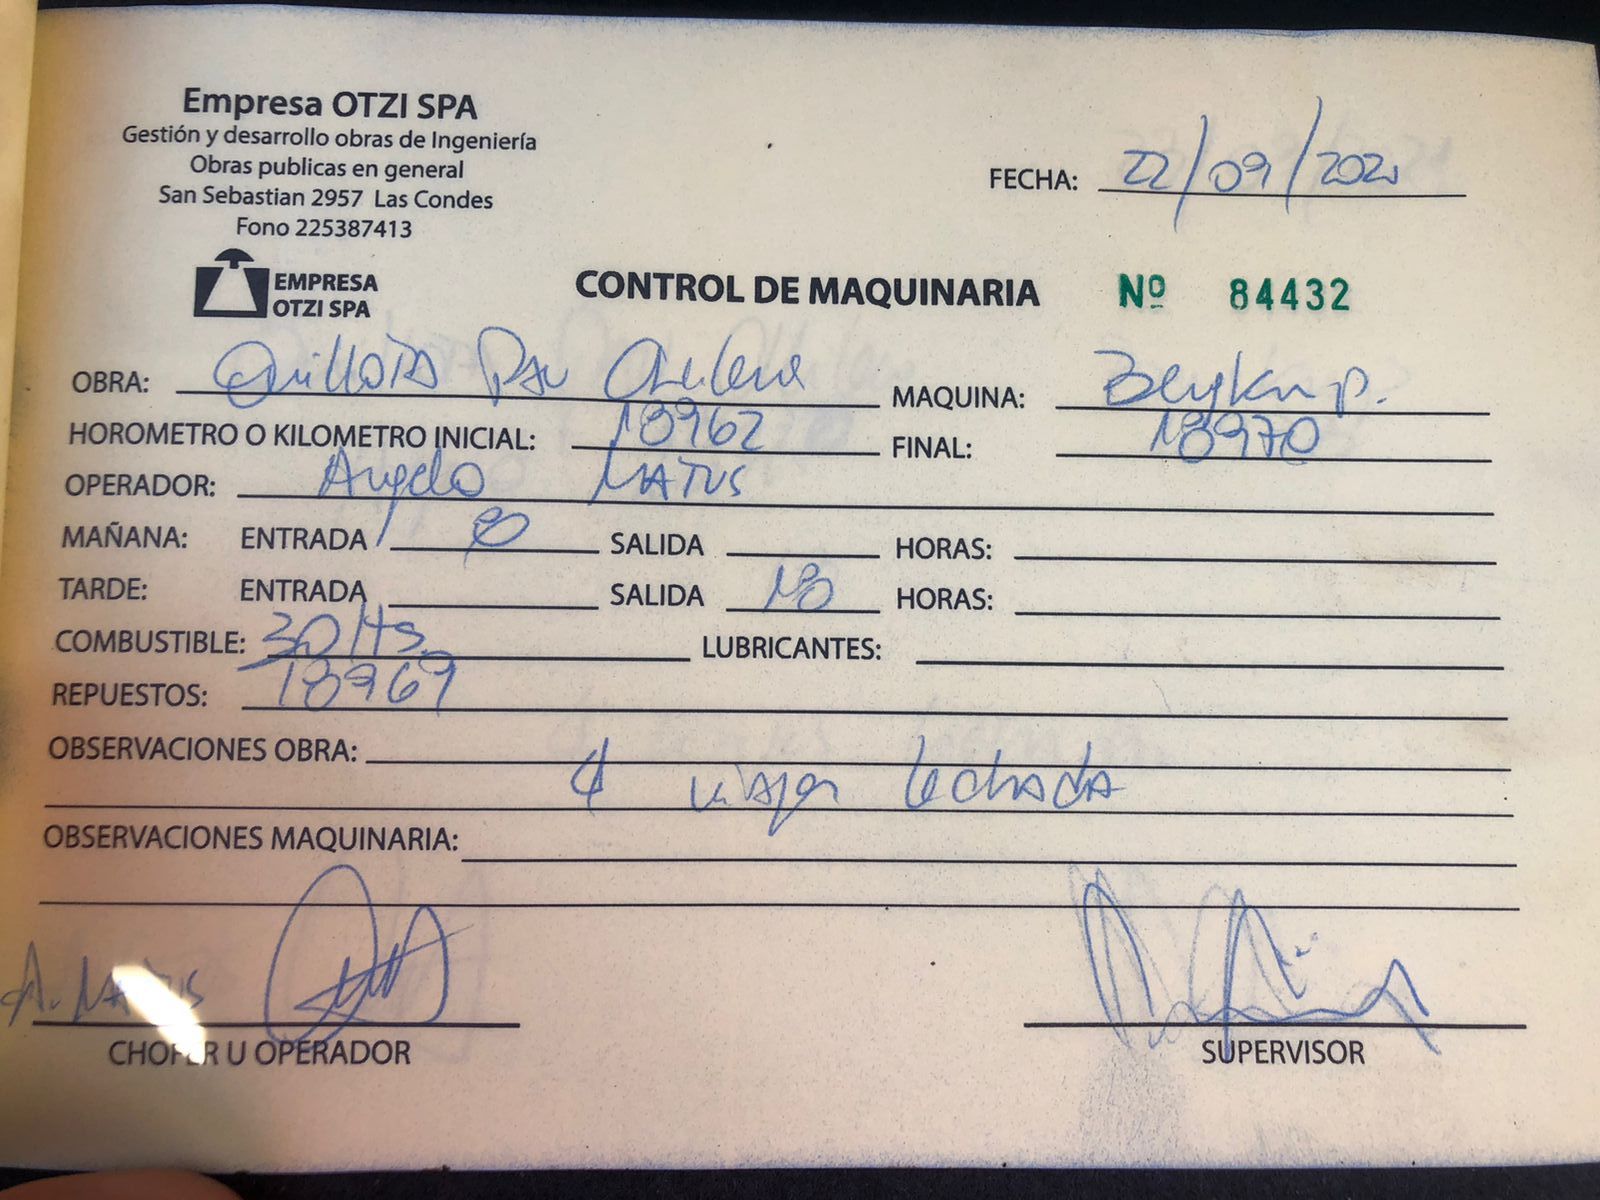 Empresa OTZI SPA
Gestión y desarrollo obras de Ingeniería
Obras publicas en general
San Sebastian 2957 Las Condes
Fono 225387413
EMPRESA
OTZI SPA
FECHA: 22/09/2020
CONTROL DE MAQUINARIA Nº 84432
OBRA: Quillota MAQUINA:
HOROMETRO O KILOMETRO INICIAL: 18962 FINAL: 18970
OPERADOR: Angelo MATUS
MAÑANA: ENTRADA 8 SALIDA HORAS:
TARDE: ENTRADA SALIDA 18 HORAS:
COMBUSTIBLE: 30 lts. LUBRICANTES:
REPUESTOS: 18969
OBSERVACIONES OBRA:
4 viajes lechada
OBSERVACIONES MAQUINARIA:
A. MATUS
CHOFER U OPERADOR SUPERVISOR